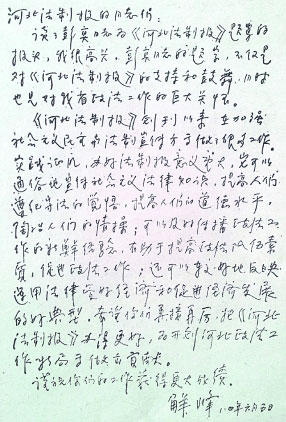 河北法制报的同志们：
读了彭真同志为《河北法制报》题字的
报头，我很高兴。彭真同志的题字，不仅是
对《河北法制报》的支持和鼓舞，同时
也是对我省政法工作的巨大关怀。
《河北法制报》创刊以来，在加强
社会主义民主与法制宣传方面做了很多工作。
实践证明，办好法制报意义重大，它可以
通俗地宣传社会主义法律知识，提高人们
遵纪守法的觉悟，提高人们的道德水平，
陶冶人们的情操；可以及时传播政法工
作的新鲜经验，有助于提高政法队伍素
质，促进政法工作；还可以更好地反映
运用法律管好经济和促进经济发展
的好典型。希望你们再接再厉，把《河北
法制报》办得更好，为开创河北政法工
作新局面做出贡献。
谨祝你们的工作获得更大成绩。
解峰